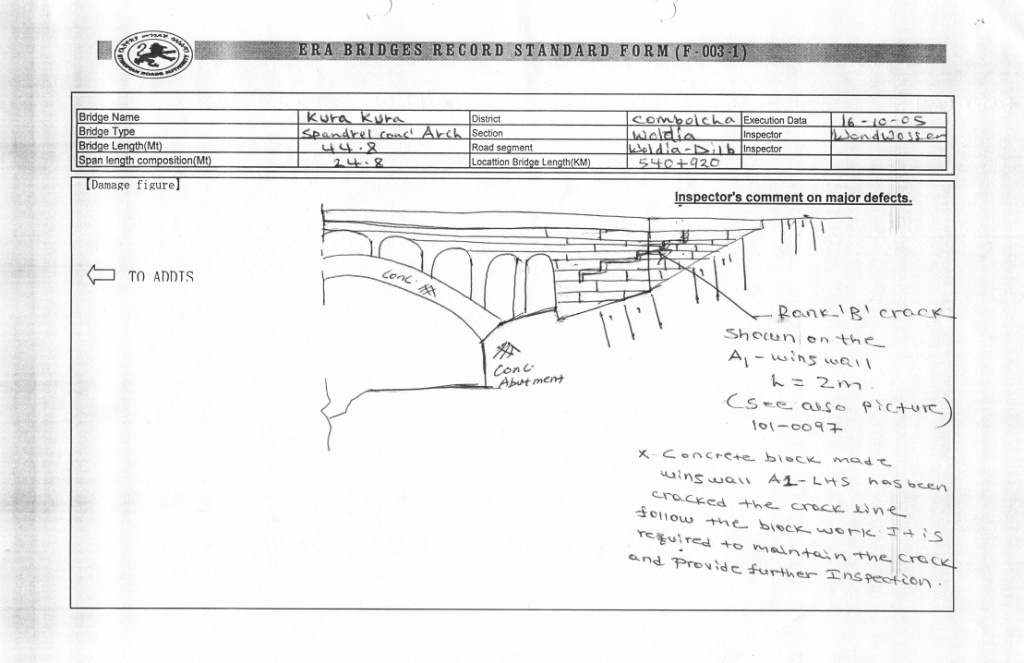 ERA BRIDGES RECORD STANDARD FORM (F-003-1)
ETHIOPIAN ROADS AUTHORITY
Bridge Name Kura Kura District Combolcha Execution Data 16-10-05
Bridge Type Spandrel conc' Arch Section Woldia Inspector Wondwossen
Bridge Length(Mt) 44.8 Road segment Woldia-Dilb Inspector
Span length composition(Mt) 24.8 Locattion Bridge Length(KM) 540+920
[Damage figure]
Inspector's comment on major defects.
TO ADDIS
Conc.
Conc.
Abutment
Rank 'B' crack
Shown on the
A1 - wing wall
h = 2m.
(See also picture)
101-0097
x - Concrete block made
wing wall A1-LHS has been
cracked the crack line
follow the block work. It is
required to maintain the crack
and provide further Inspection.